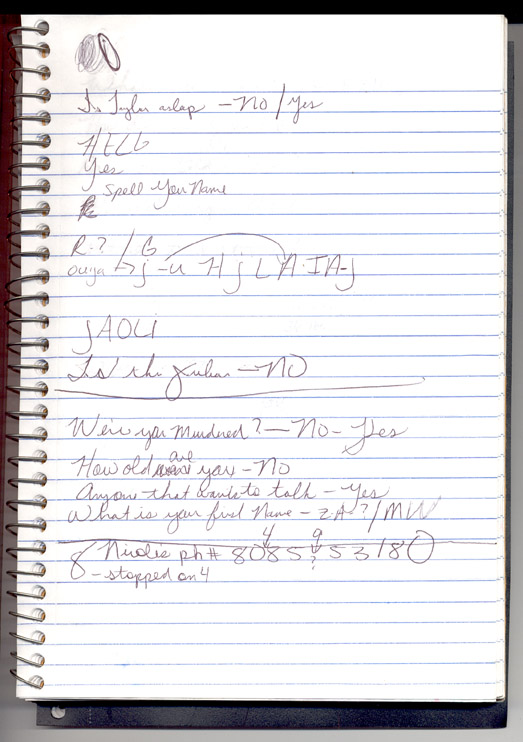 Is Tyler aslap - No / Yes
HELG
Yes
Spell Your Name
R-? / G
ouija -> j-u H j L A·IA-j
jAOLi
Is this Julian - NO
Were you Murdered? - No - Yes
How old are you - No
Anyone that wants to talk - Yes
What is your first Name - ZA?/MW
4 9
8 ph# 8085?53180
- stopped on 4